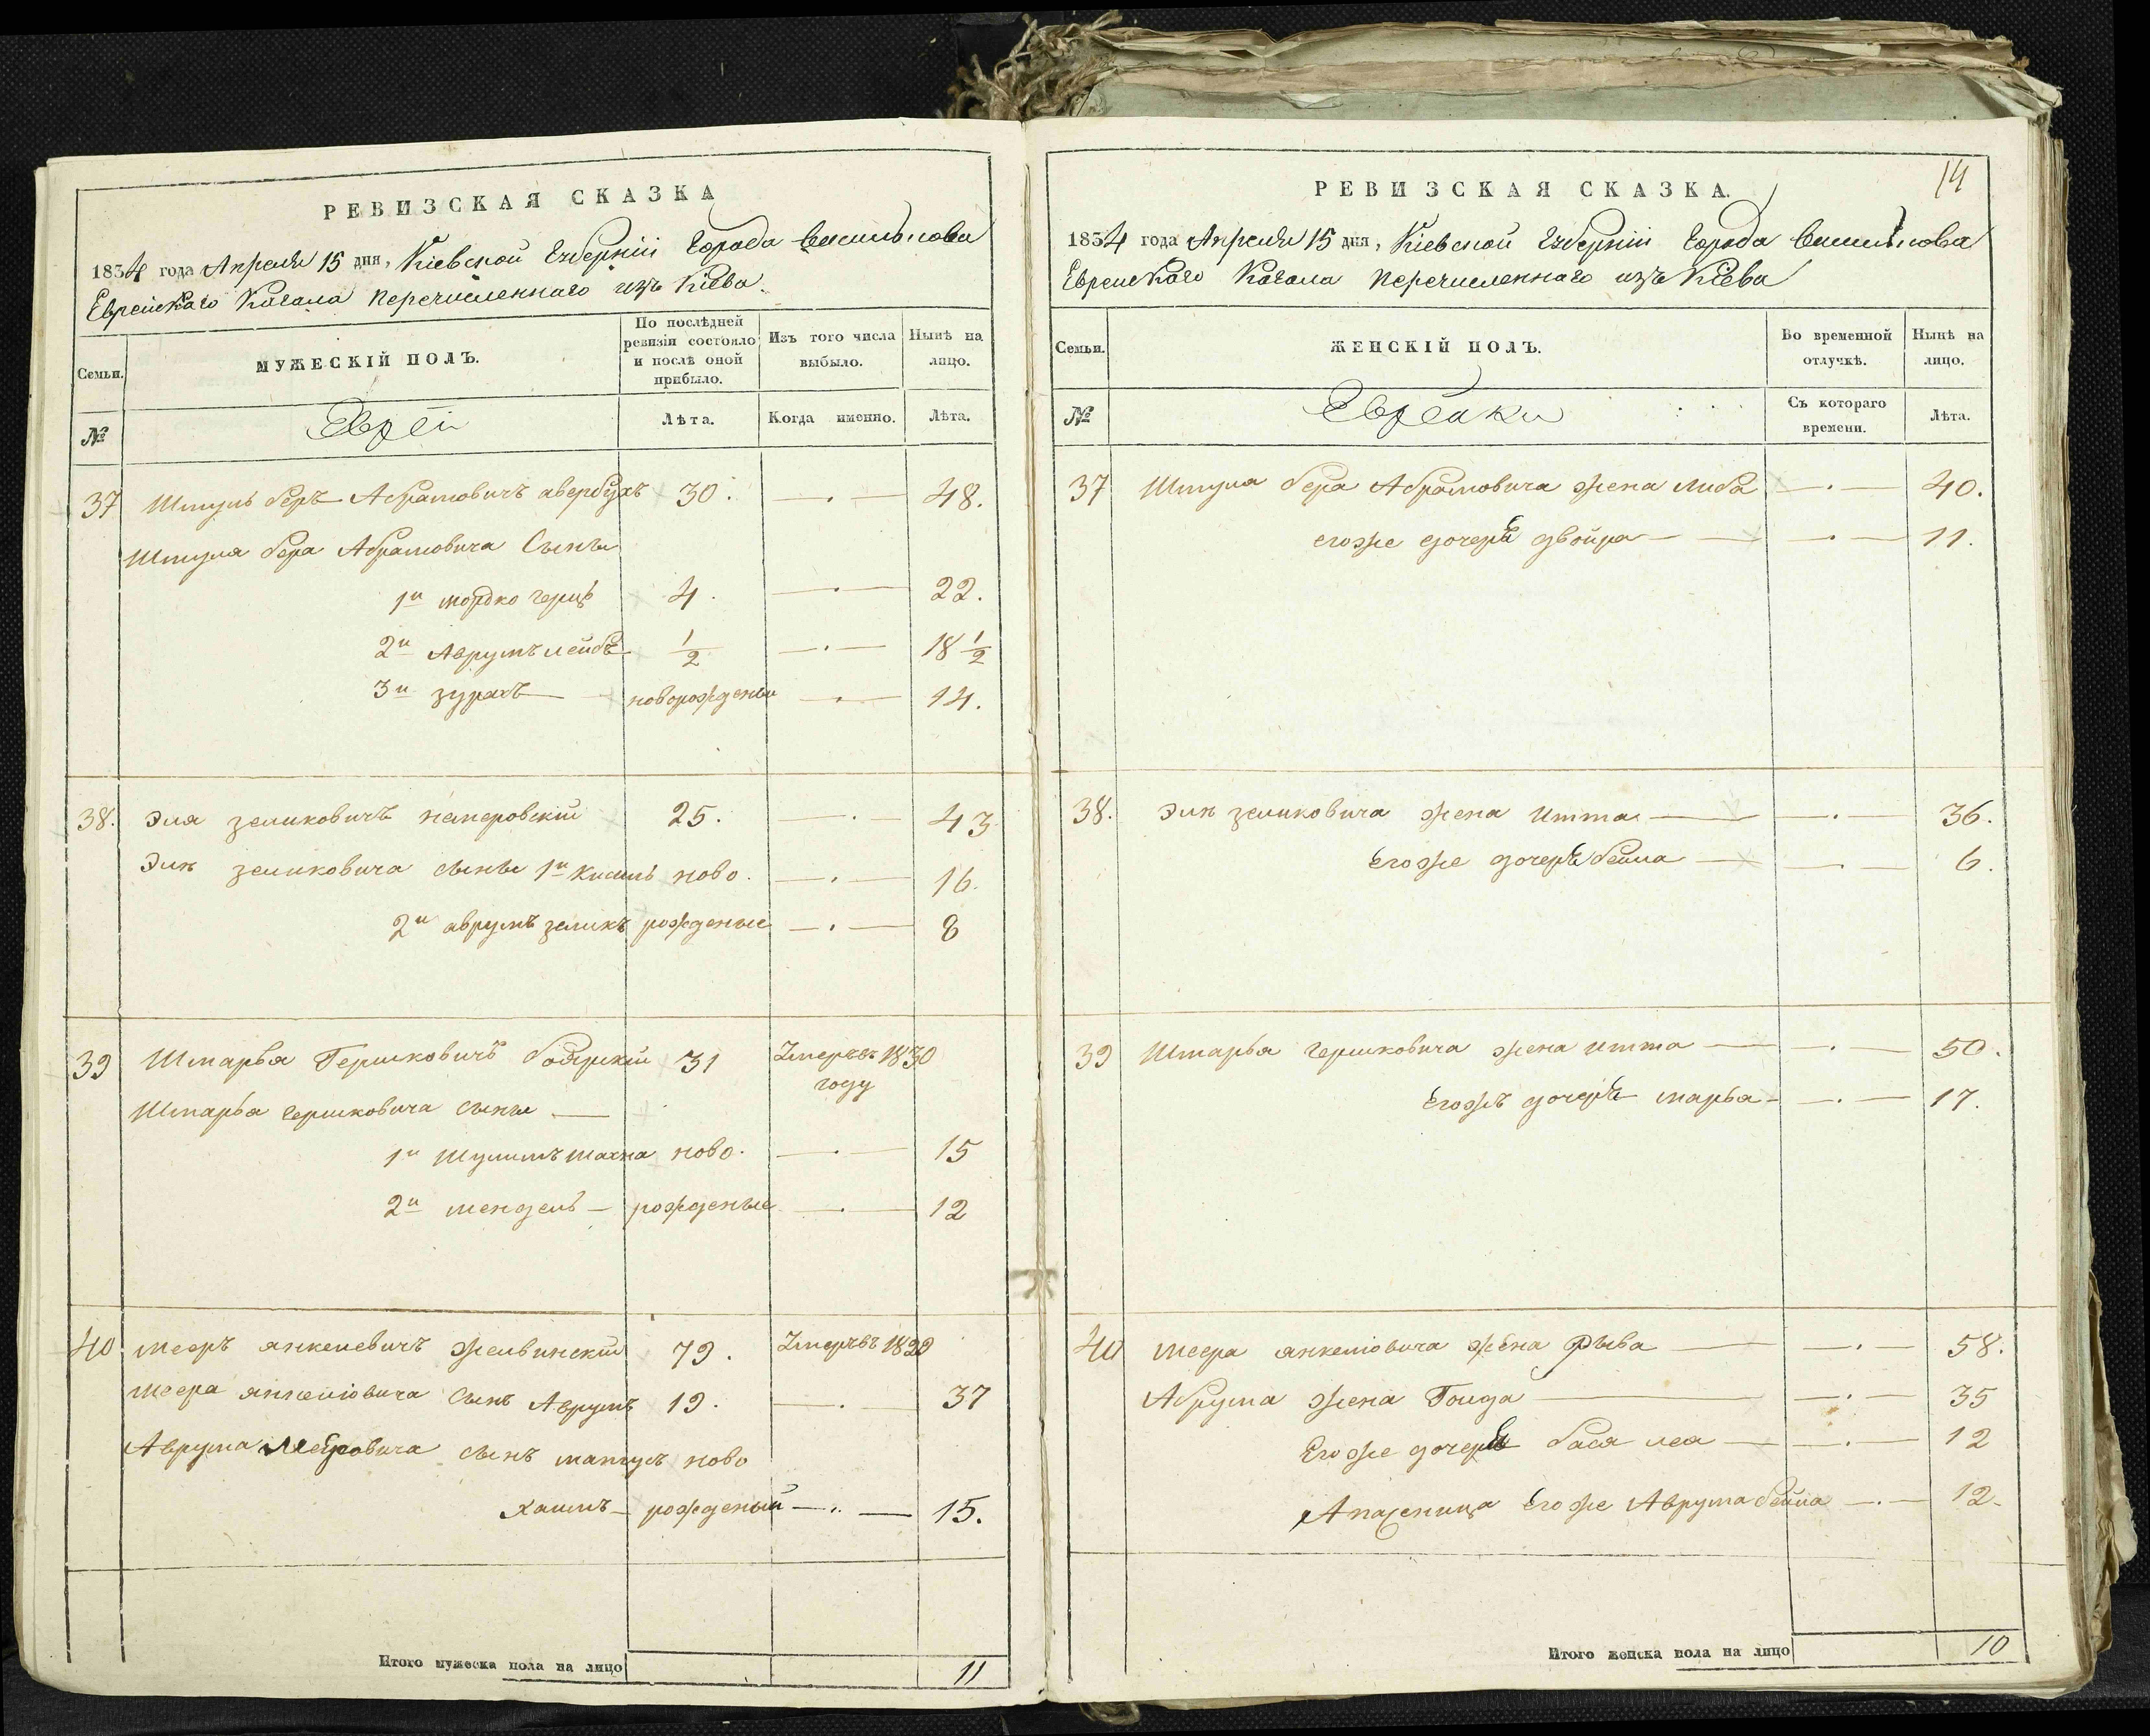 РЕВИЗСКАЯ СКАЗКА
1834 года Апреля 15 дня, Кіевской Губерніи Города Василькова
Еврейскаго Кагала перечисленнаго изъ Кіева.
Семьи.
МУЖЕСКІЙ ПОЛЪ.
По послѣдней ревизіи состояло и послѣ оной прибыло.
Изъ того числа выбыло.
Нынѣ на лицо.
№
Еврей
Лѣта.
Когда именно.
Лѣта.
37 Шмуль беръ Абрамовичъ авербухъ 30. 48.
Шмуля бера Абрамовича Сыны
1й мордко герцъ 4. 22.
2й Аврумъ лейбъ 1/2 18 1/2
3й зурахъ новорожденый 14.
38. Эля зеликовичъ немеровскій 25. 43
Эли зеликовича сыны 1й Кисиль ново. 16.
2й аврумъ зеликъ рожденые 8
39 Шмарья Гершковичъ боярскій 31 Умеръ въ 1830
году
Шмарья гершковича сыны
1й Шулимъ шахна ново. 15
2й мендель рожденые 12
40 мееръ янкелевичъ желвинскій 79. Умеръ въ 1820
меера янкеліовича Сынъ Аврумъ 19. 37
Аврума Меëровича сынъ манусъ ново
хаимъ рожденый 15.
Итого мужеска пола на лицо 11
14
РЕВИЗСКАЯ СКАЗКА.
1834 года Апреля 15 дня, Кіевской Губерніи Города Василькова
Еврейскаго Кагала перечисленнаго изъ Кіева
Семьи.
ЖЕНСКІЙ ПОЛЪ.
Во временной отлучкѣ.
Нынѣ на лицо.
№
Еврейки
Съ котораго времени.
Лѣта.
37 Шмуля бера Абрамовича жена Либа 40.
егоже дочерь двойра 11.
38. Эли зеликовича жена Итта 36.
Егоже дочерь бейла 6.
39 Шмарья гершковича жена итта 50.
Егожъ дочерь марья 17.
40 Меера янкеліовича жена Рыва 58.
Абрума жена Голда 35
Егоже дочеръ бася леа 12
Егоже Аврума бейла 12.
Итого женска пола на лицо 10